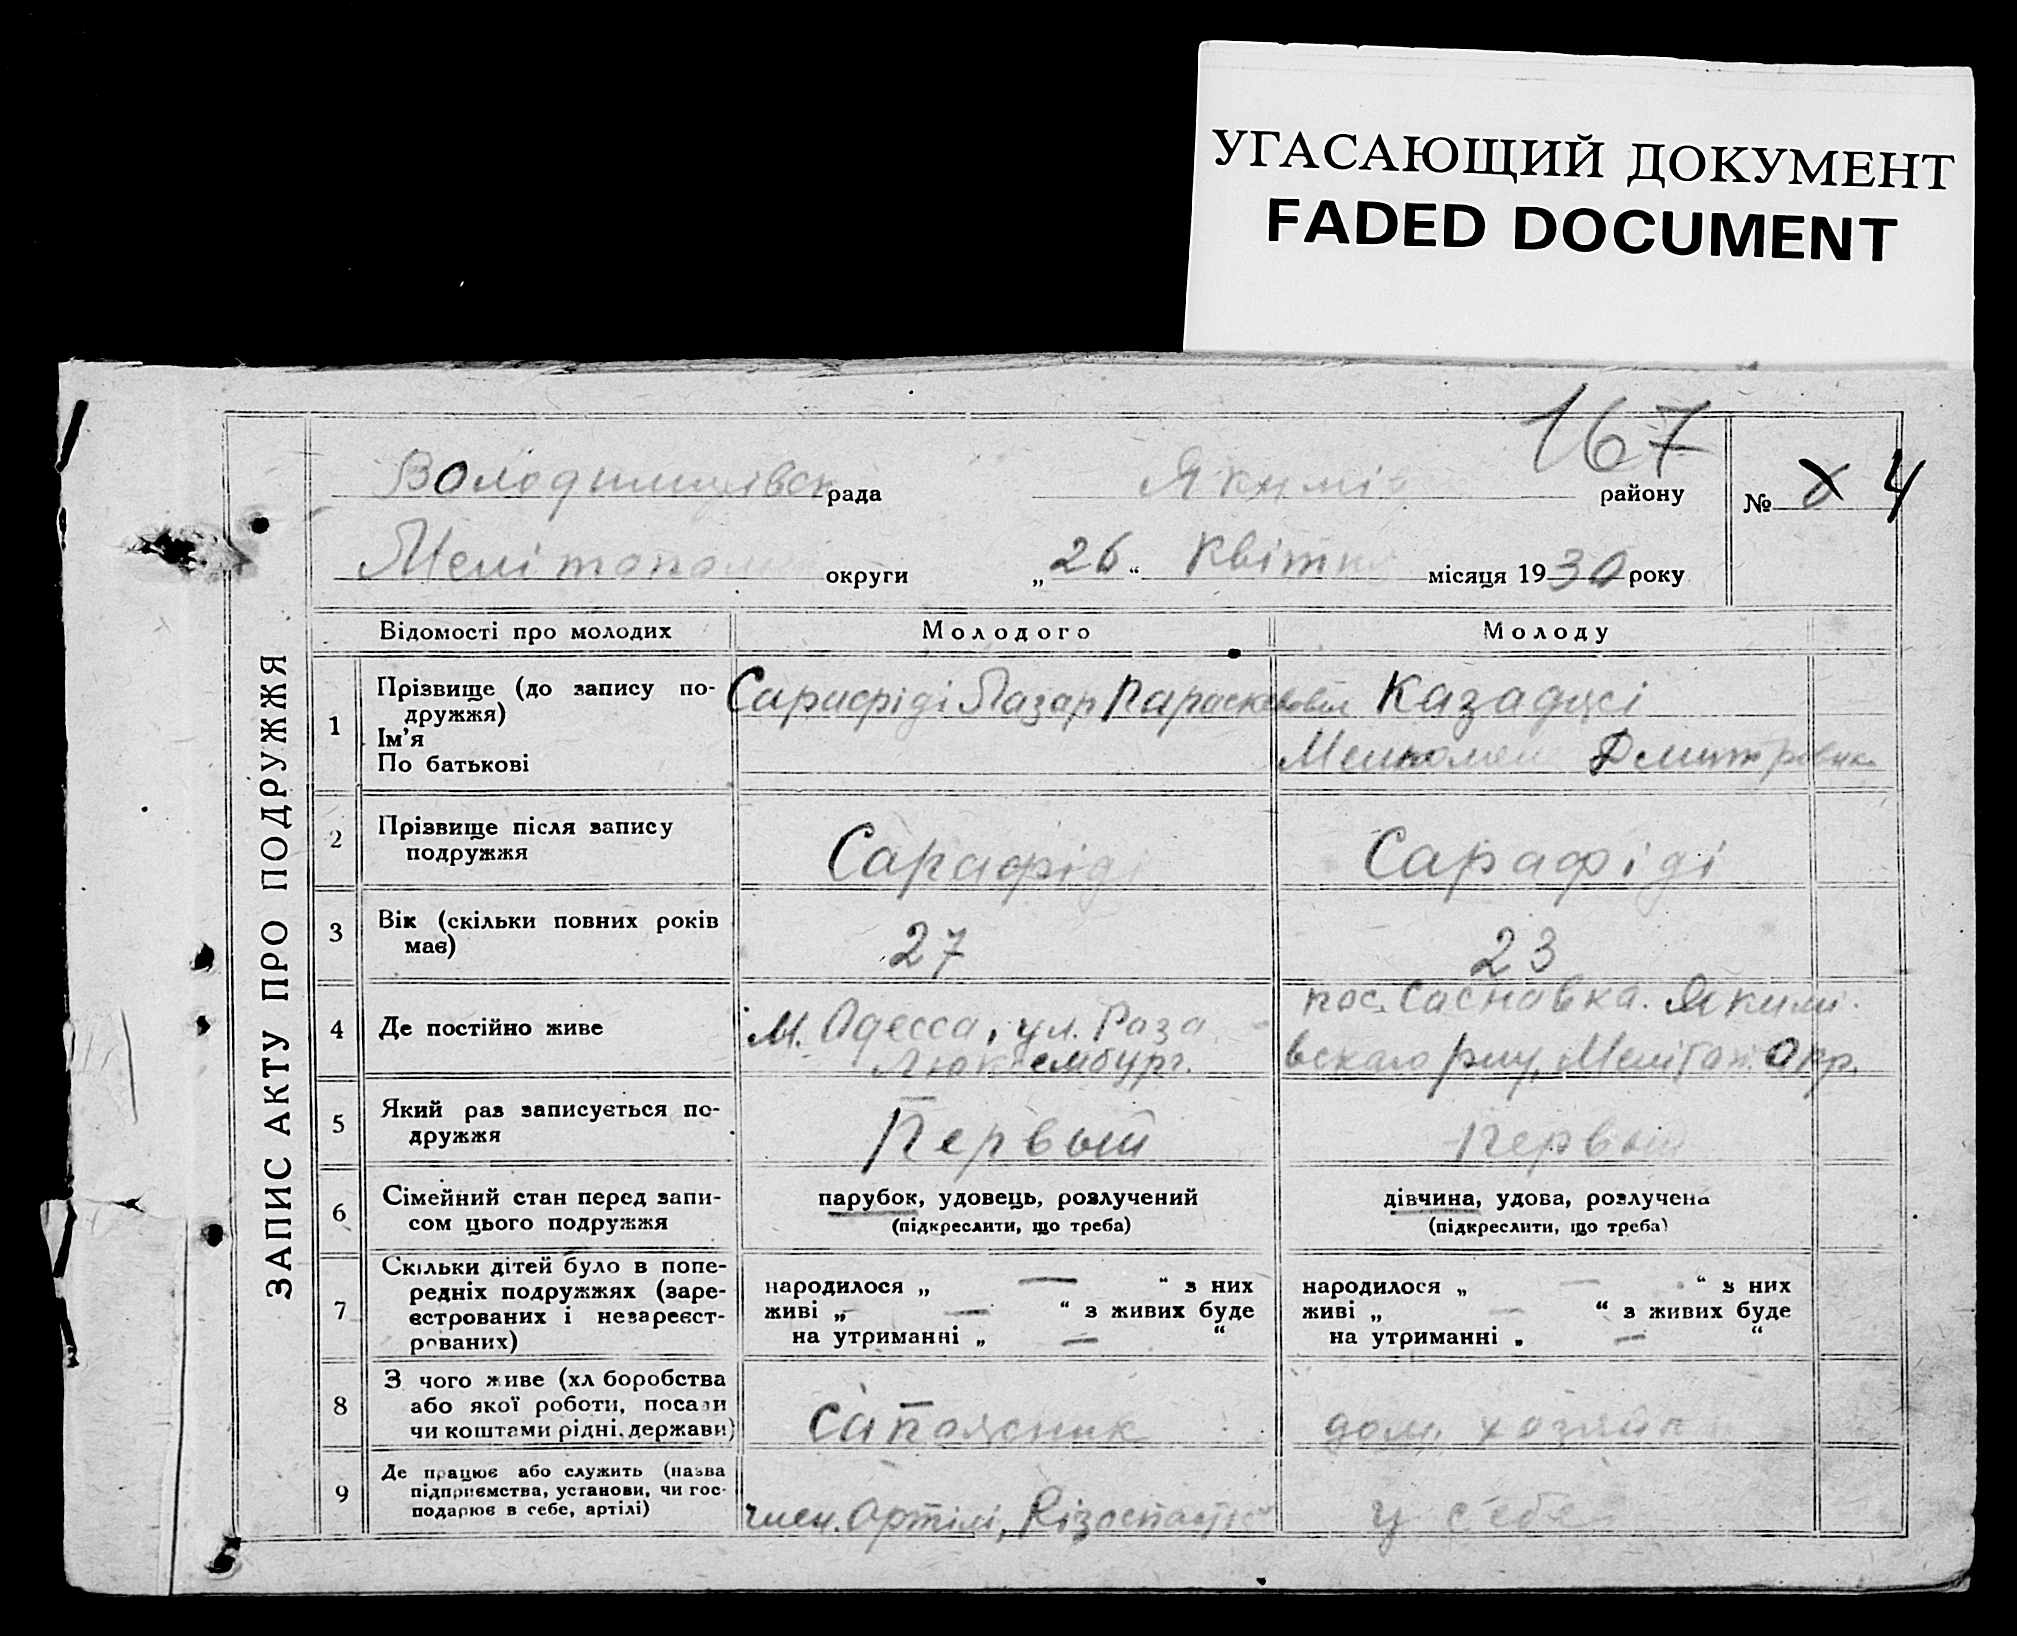 УГАСАЮЩИЙ ДОКУМЕНТ
FADED DOCUMENT
167
рада Якимів району № 4
Мелітопол округи „26“ Квітня місяця 1930 року
ЗАПИС АКТУ ПРО ПОДРУЖЖЯ
Відомості про молодих Молодого Молоду
1 Прізвище (до запису по-
дружжя)
Ім'я
По батькові
Сарафіді Лазар
Казаджі
Дмитровна
2 Прізвище після запису
подружжя
Сарафіді Сарафіді
3 Вік (скільки повних років
має)
27 23
4 Де постійно живе
м. Одесса, ул. Роза
Люксембург.
пос. Саснавка. Якими-
вскаго рну, Меліτοп. Окр.
5 Який раз записується по-
дружжя
Первый Первый
6 Сімейний стан перед запи-
сом цього подружжя
парубок, удовець, розлучений
(підкреслити, що треба)
дівчина, удова, розлучена
(підкреслити, що треба)
7 Скільки дітей було в попе-
редніх подружжях (заре-
єстрованих і незареєст-
рованих)
народилося „ — “ з них
живі „ — “ з живих буде
на утриманні „ — “
народилося „ — “ з них
живі „ — “ з живих буде
на утриманні „ — “
8 З чого живе (хліборобства
або якої роботи, посади
чи коштами рідні, держави)
сапожник дом. хозяйк
9 Де працює або служить (назва
підприємства, установи, чи гос-
подарює в себе, артілі)
член. Артілі, у себе